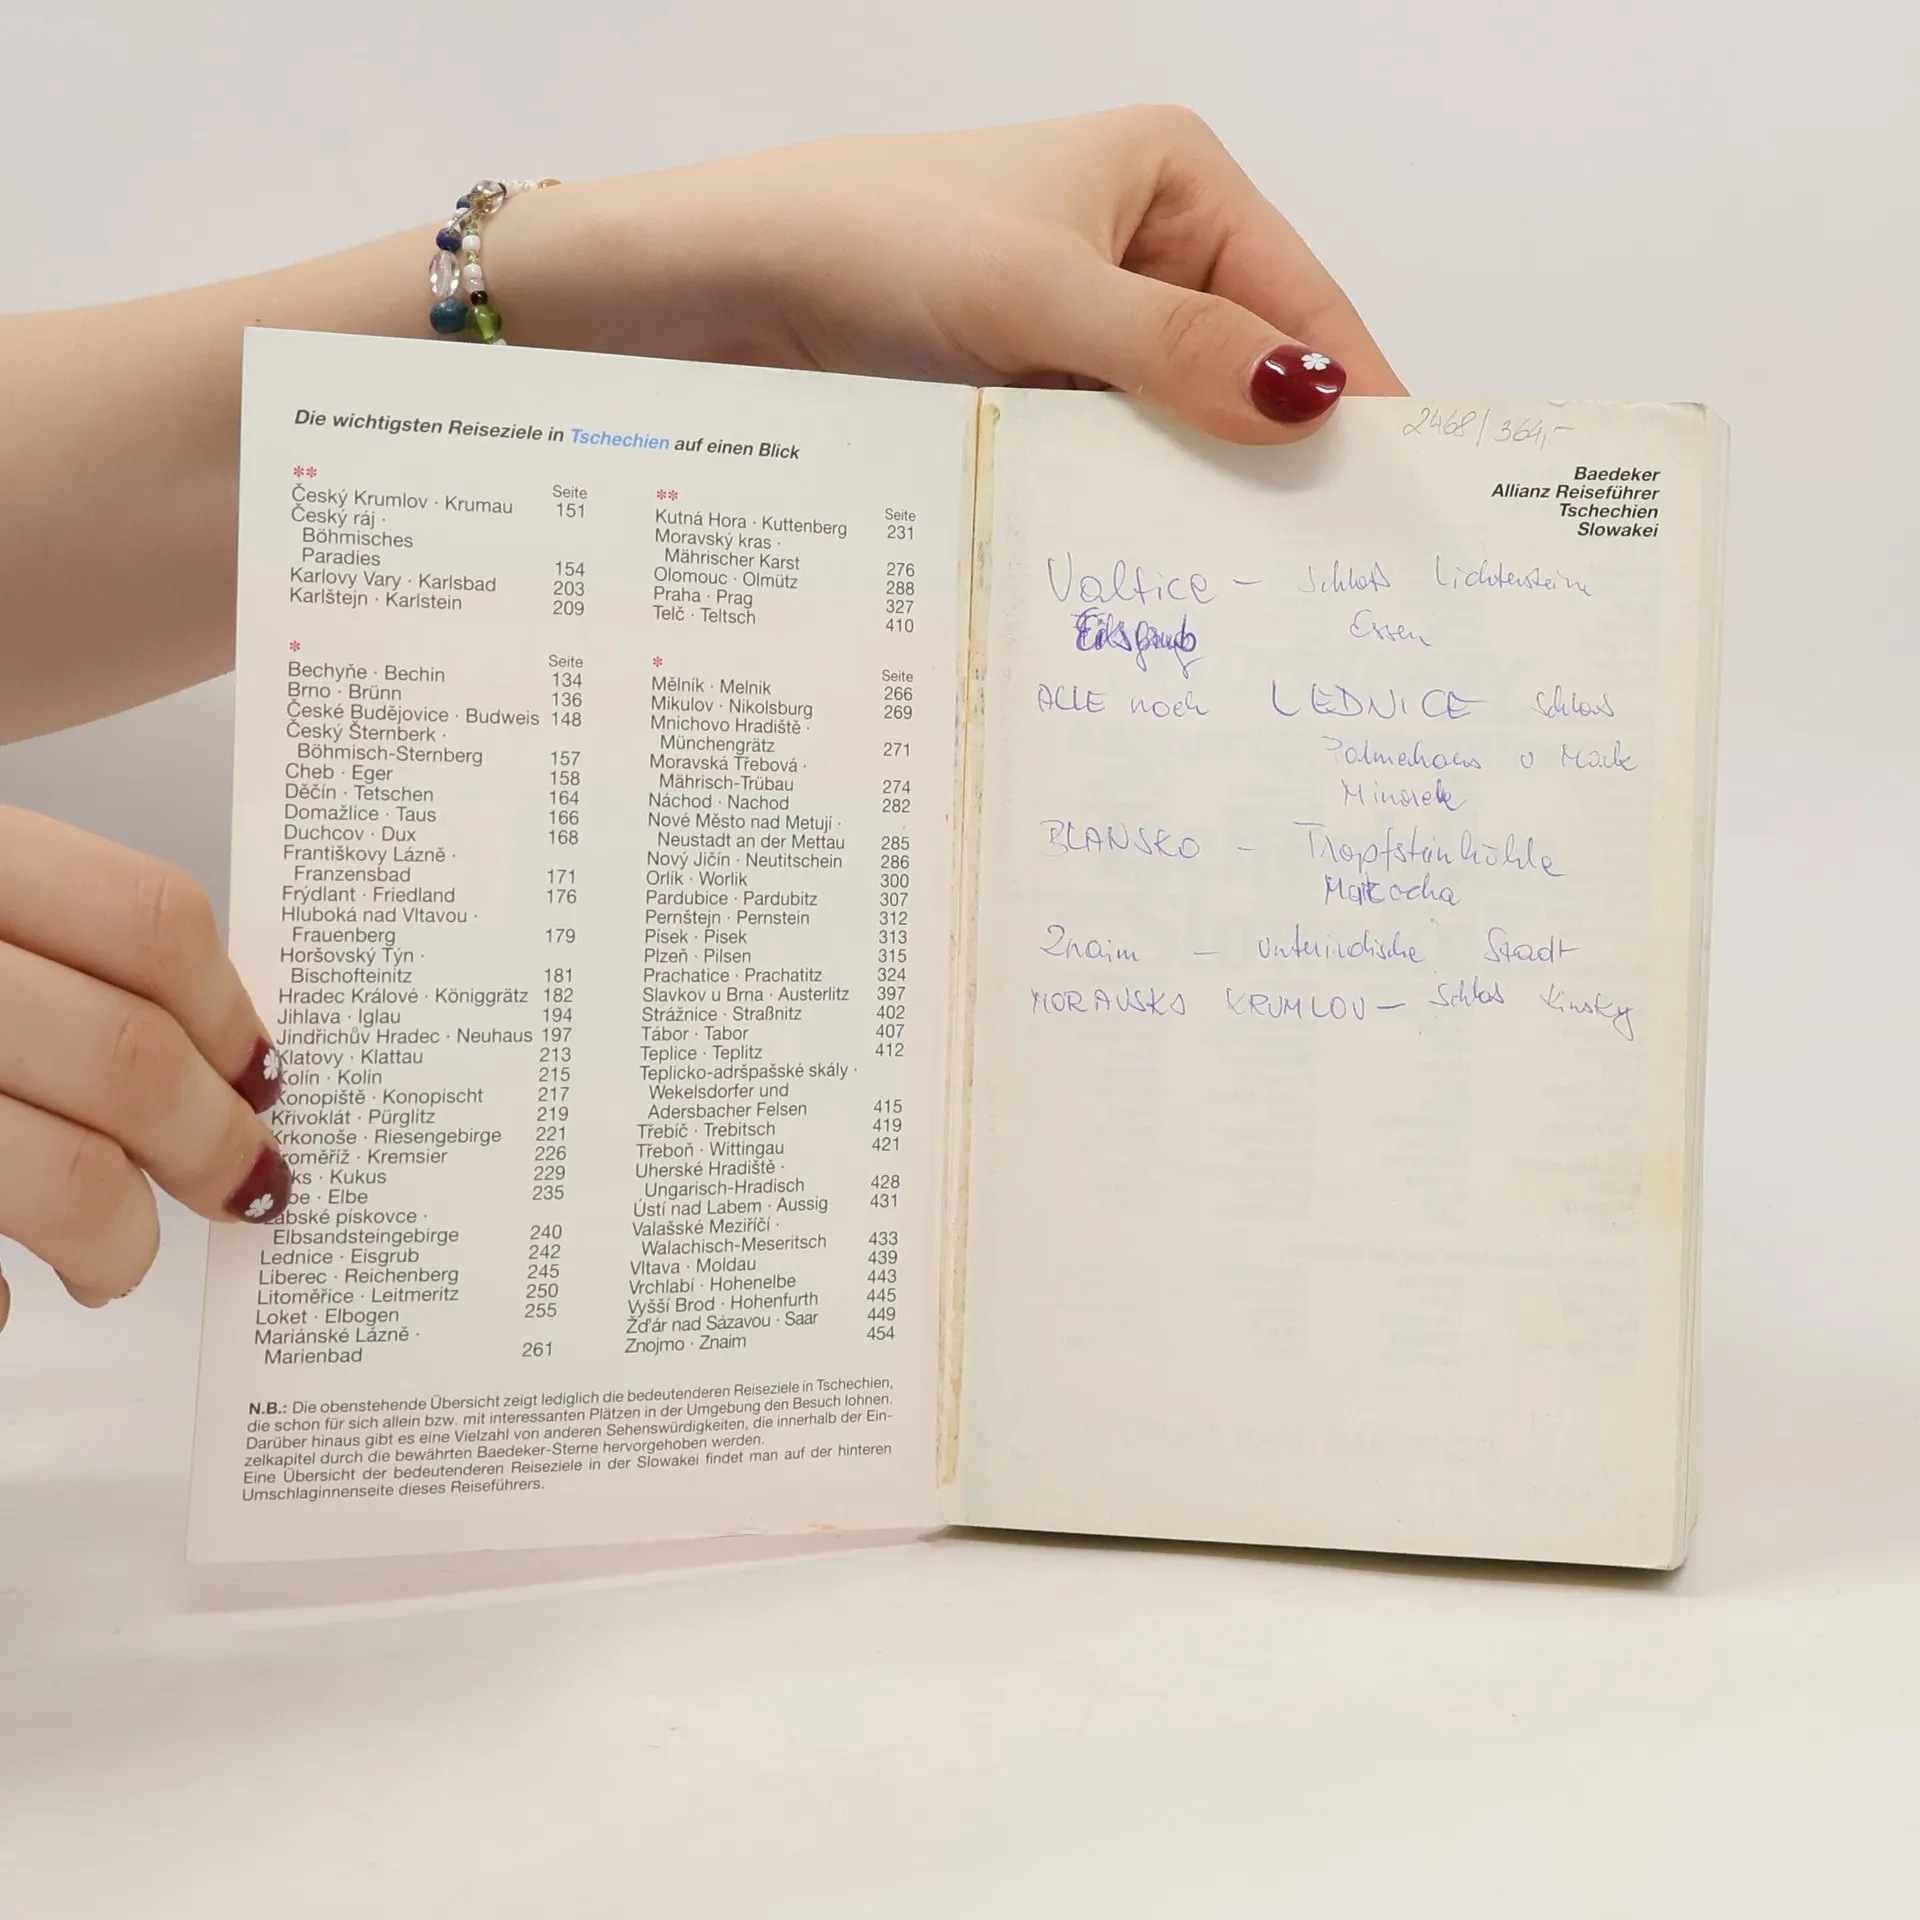 Die wichtigsten Reiseziele in Tschechien auf einen Blick
**
Seite
Český Krumlov · Krumau 151
Český ráj ·
Böhmisches
Paradies 154
Karlovy Vary · Karlsbad 203
Karlštejn · Karlstein 209
*
Seite
Bechyňe · Bechin 134
Brno · Brünn 136
České Budějovice · Budweis 148
Český Šternberk ·
Böhmisch-Sternberg 157
Cheb · Eger 158
Děčín · Tetschen 164
Domažlice · Taus 166
Duchcov · Dux 168
Františkovy Lázně ·
Franzensbad 171
Frýdlant · Friedland 176
Hluboká nad Vltavou ·
Frauenberg 179
Horšovský Týn ·
Bischofteinitz 181
Hradec Králové · Königgrätz 182
Jihlava · Iglau 194
Jindřichův Hradec · Neuhaus 197
Klatovy · Klattau 213
Kolín · Kolin 215
Konopiště · Konopischt 217
Křivoklát · Pürglitz 219
Krkonoše · Riesengebirge 221
roměříž · Kremsier 226
ks · Kukus 229
be · Elbe 235
abské pískovce ·
Elbsandsteingebirge 240
Lednice · Eisgrub 242
Liberec · Reichenberg 245
Litoměřice · Leitmeritz 250
Loket · Elbogen 255
Mariánské Lázně ·
Marienbad 261
**
Seite
Kutná Hora · Kuttenberg 231
Moravský kras ·
Mährischer Karst 276
Olomouc · Olmütz 288
Praha · Prag 327
Telč · Teltsch 410
*
Seite
Mělník · Melnik 266
Mikulov · Nikolsburg 269
Mnichovo Hradiště ·
Münchengrätz 271
Moravská Třebová ·
Mährisch-Trübau 274
Náchod · Nachod 282
Nové Město nad Metují ·
Neustadt an der Mettau 285
Nový Jičín · Neutitschein 286
Orlík · Worlik 300
Pardubice · Pardubitz 307
Pernštejn · Pernstein 312
Písek · Pisek 313
Plzeň · Pilsen 315
Prachatice · Prachatitz 324
Slavkov u Brna · Austerlitz 397
Strážnice · Straßnitz 402
Tábor · Tabor 407
Teplice · Teplitz 412
Teplicko-adršpašské skály ·
Wekelsdorfer und
Adersbacher Felsen 415
Třebíč · Trebitsch 419
Třeboň · Wittingau 421
Uherské Hradiště ·
Ungarisch-Hradisch 428
Ústí nad Labem · Aussig 431
Valašské Meziříčí ·
Walachisch-Meseritsch 433
Vltava · Moldau 439
Vrchlabí · Hohenelbe 443
Vyšší Brod · Hohenfurth 445
Žďár nad Sázavou · Saar 449
Znojmo · Znaim 454
N.B.: Die obenstehende Übersicht zeigt lediglich die bedeutenderen Reiseziele in Tschechien,
die schon für sich allein bzw. mit interessanten Plätzen in der Umgebung den Besuch lohnen.
Darüber hinaus gibt es eine Vielzahl von anderen Sehenswürdigkeiten, die innerhalb der Ein-
zelkapitel durch die bewährten Baedeker-Sterne hervorgehoben werden.
Eine Übersicht der bedeutenderen Reiseziele in der Slowakei findet man auf der hinteren
Umschlaginnenseite dieses Reiseführers.
2468/364,-
Baedeker
Allianz Reiseführer
Tschechien
Slowakei
Valtice – Schloß Lichtensteine
Essen
ALLE noch LEDNICE Schloß
Palmehaus u
Minarete
BLANSKO – Tropfsteinhöhle
Macocha
Znaim – unterirdische Stadt
MORAVSKÝ KRUMLOV – Schloß Kinsky